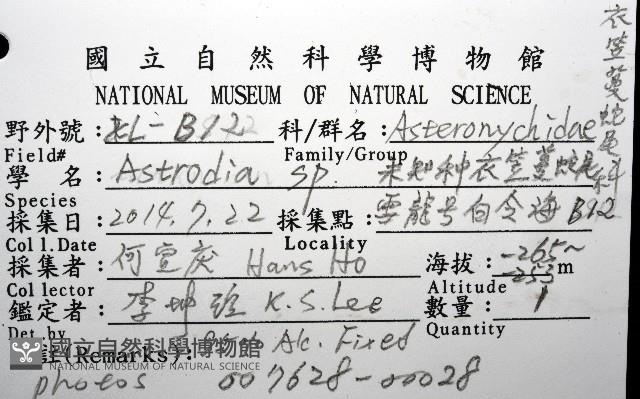 國立自然科學博物館
NATIONAL MUSEUM OF NATURAL SCIENCE
野外號: EL-B922 科/群名: Asteronychidae
Field# Family/Group
衣笠蔓蛇尾科
學 名: Astrodia sp. 未知种衣笠蔓蛇尾
Species
採集日: 2014.7.22 採集點: 雲龍号白令海 B92
Col l.Date Locality
採集者: 何宣庆 Hans Ho 海拔: -265~-253 m
Col lector Altitude
鑑定者: 李坤瑄 K.S.Lee 數量: 1
Det.by Quantity
(Remarks): Alc. Fixed
國立自然科學博物館
NATIONAL MUSEUM OF NATURAL SCIENCE
photos 007628-00028